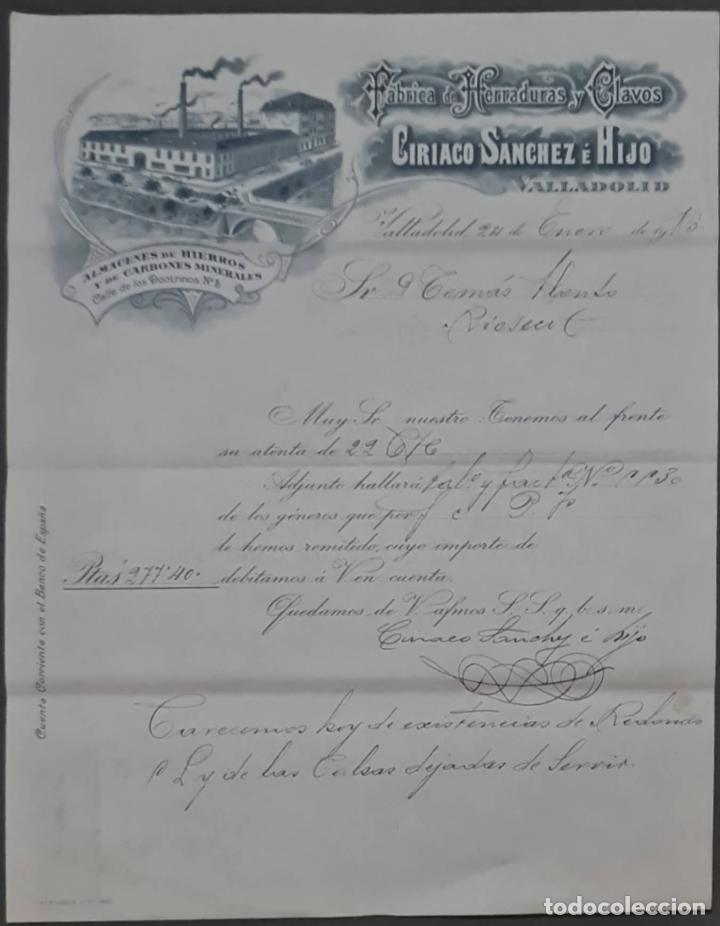 Fábrica de Herraduras y Clavos
CIRIACO SANCHEZ É HIJO
VALLADOLID
ALMACENES DE HIERROS
Y DE CARBONES MINERALES
Calle de los Doctrinos Nº 5
Valladolid 24 de Enero de 1913
Sr D Tomás
Rioseco
Muy Sr nuestro: Tenemos al frente
su atenta de 22 Cte
Adjunto hallará tal.º y fact.ª Nº 1130
de los géneros que por f c P. P.
le hemos remitido, cuyo importe de
Ptas 277'40. debitamos á V en cuenta.
Quedamos de V. afmos S. S. q. b. s. m.
Ciriaco Sanchez é hijo
Carecemos hoy de existencias de Redondo
y de las dejadas de Servir.
Cuenta Corriente con el Banco de España
todocoleccion